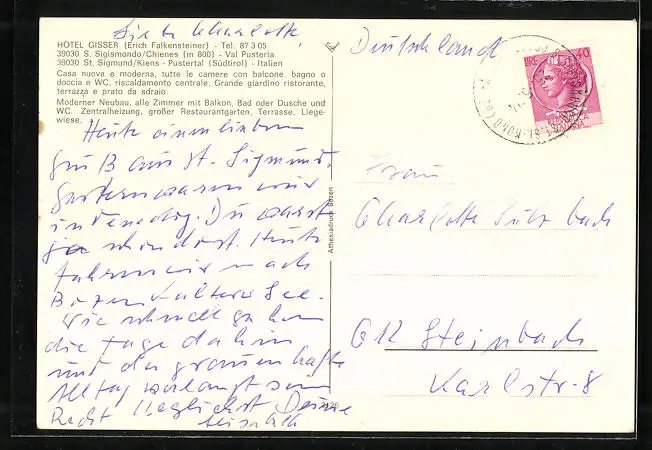 Liebe Charlotte,
HOTEL GISSER (Erich Falkensteiner) - Tel. 87 3 05
39030 S. Sigismondo/Chienes (m 800) - Val Pusteria
39030 St. Sigmund/Kiens - Pustertal (Südtirol) - Italien
Casa nuova e moderna, tutte le camere con balcone, bagno o
doccia e WC, riscaldamento centrale. Grande giardino ristorante,
terrazza e prato da sdraio.
Moderner Neubau, alle Zimmer mit Balkon, Bad oder Dusche und
WC. Zentralheizung, großer Restaurantgarten, Terrasse, Liege-
wiese.
Heute einen lieben
Gruß aus St. Sigmund.
Gestern waren wir
in Venedig. Du warst
ja schon dort. Heute
fahren wir nach
Bozen Kalterer See.
Wie schnell gehen
die Tage dahin
und der grauenhafte
Alltag verlangt sein
Recht Herzlichst Deine
Elisabeth
Athesiadruck Bozen
Deutschland
LIRE 40
Frau
Charlotte Sulzbach
612 Steinbach
Karlstr. 8